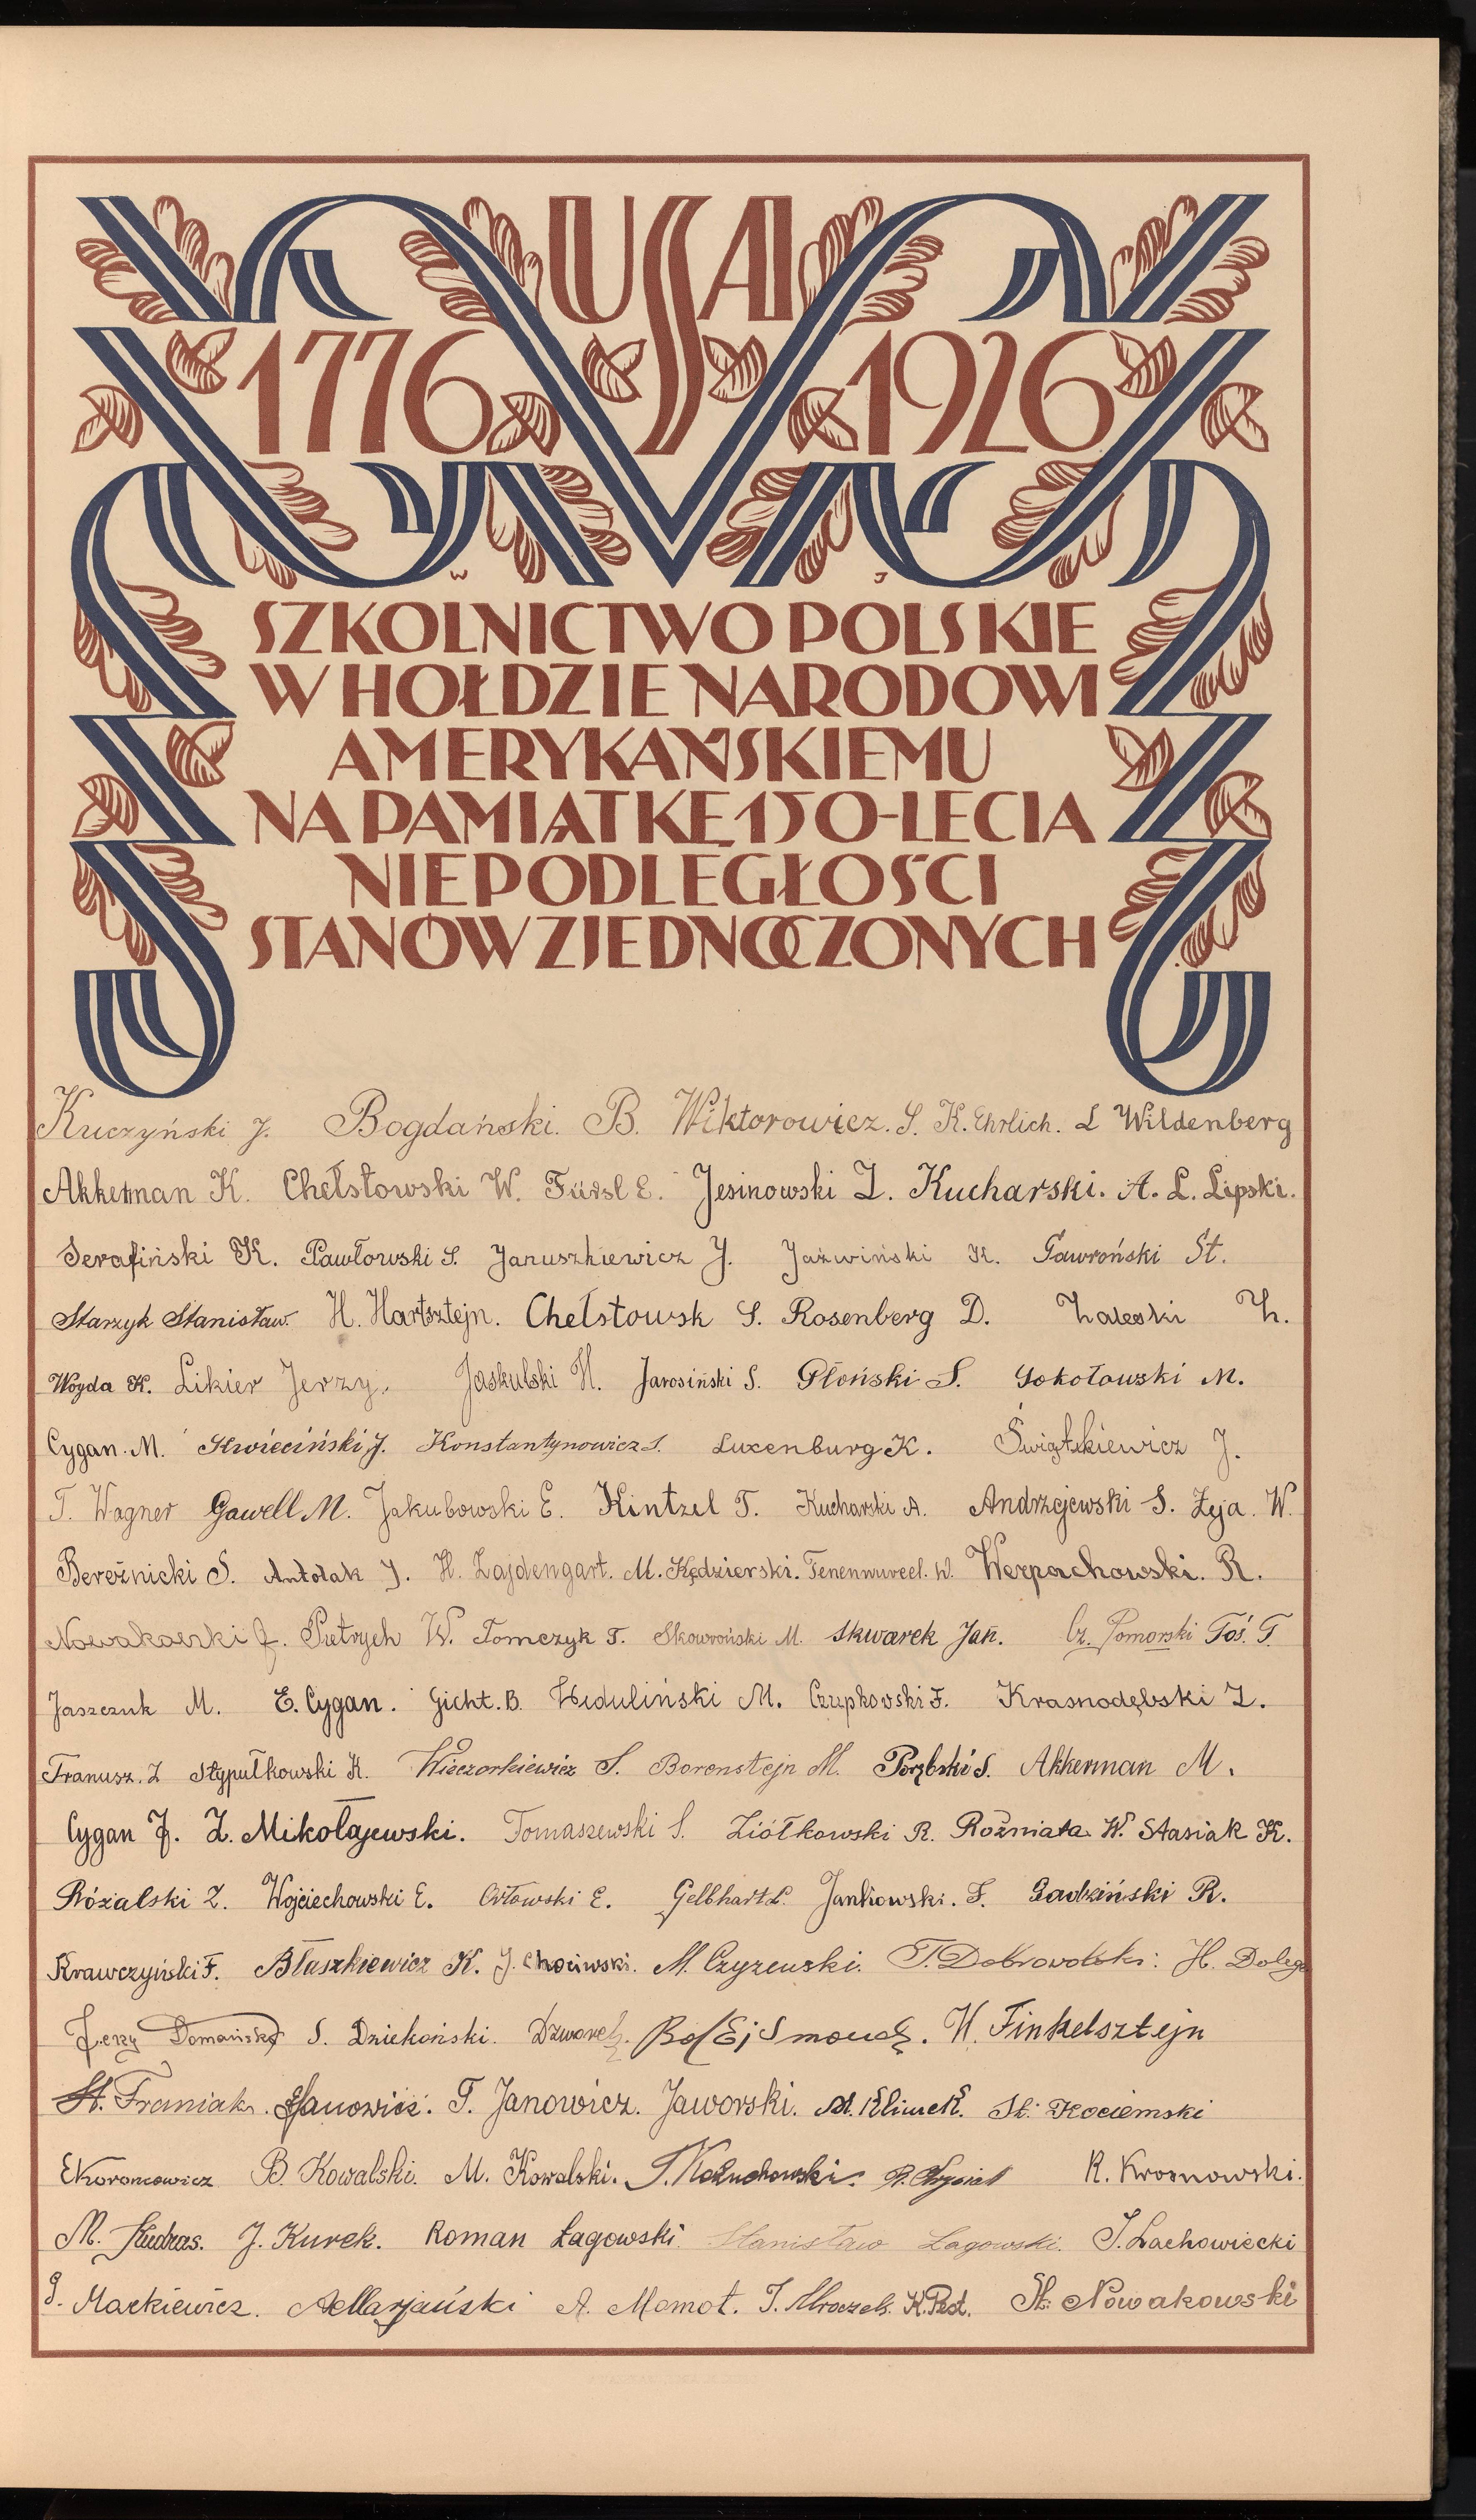 USA
1776 1926
W J
SZKOLNICTWO POLSKIE
W HOŁDZIE NARODOWI
AMERYKAŃSKIEMU
NA PAMIĄTKĘ 150-LECIA
NIEPODLEGŁOŚCI
STANÓW ZJEDNOCZONYCH
Kuczyński J. Bogdański. B. Wiktorowicz. S. K. Ehrlich. L Wildenberg
Akkerman K. Chełstowski W. Fürsl E. Jesinowski Z. Kucharski. A. L. Lipski.
Serafiński K. Pawłowski S. Januszkiewicz J. Jaźwiński K. Gawroński St.
Starzyk Stanisław. H. Hartsztejn. Chełstowsk S. Rosenberg D. Zaleski Z.
Woyda K. Likier Jerzy. Jaskulski H. Jarosiński S. Płoński S. Sokołowski M.
Cygan. M. Kwieciński J. Konstantynowicz S. Luxenburg K. Świątkiewicz J.
T. Wagner Gawell M. Jakubowski E. Kintzel T. Kucharski A. Andrzejewski S. Zyja. W.
Bereźnicki S. Antolak J. H. Zajdengart. M. Kędzierski. W. Werpachowski. R.
Nowakowski J. Pietrych W. Tomczyk T. Skowroński M. Skwarek Jan. Cz. Pomorski Toś. T.
Jaszczuk M. E. Cygan. Gicht. B. Heduliński M. Czupkowski F. Krasnodębski Z.
Franusz. Z Stypułkowski K. Wieczorkiewicz S. Borensztejn M. Porębski S. Akkerman M.
Cygan J. Z. Mikołajewski. Tomaszewski S. Ziółkowski R. Rożniata W. Stasiak K.
Rózalski Z. Wojciechowski E. Orłowski E. Gelbhart L. Jankowski. F. Gadziński R.
Krawczyński F. Błaszkiewicz K. J. Chociwski. M. Czyżewski. T. Dobrowolski. H. Dolega
Jerzy Domański S. Dziekoński. Dzwonek. Bol Ejsmond. H. Finkelsztejn
St. Franiak. Janowicz. T. Janowicz. Jaworski. M. Klimek. St. Kociemski
E Koroncowicz B. Kowalski. M. Kowalski. T. Kożuchowski. R. Krosnowski.
M. Kudras. J. Kurek. Roman Łagowski. Stanisław Łagowski. J. Lachowiecki
J. Mackiewicz. A Marjański A. Momot. T. Mroczek. K. Pest. St. Nowakowski